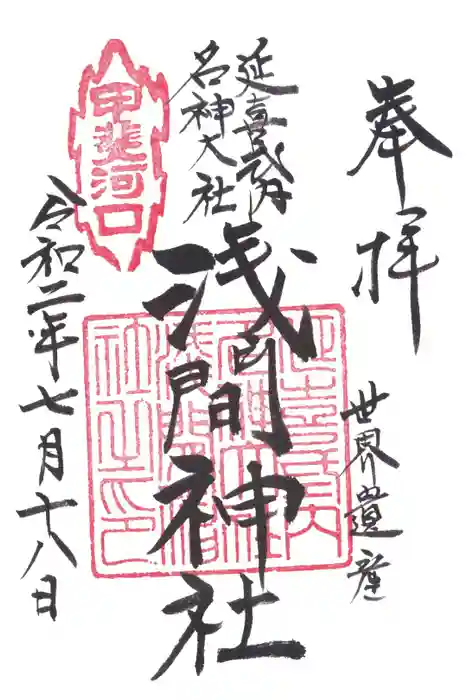 奉拝
世界遺産
延喜式内
名神大社
浅間神社
甲斐河口
令和二年七月十八日